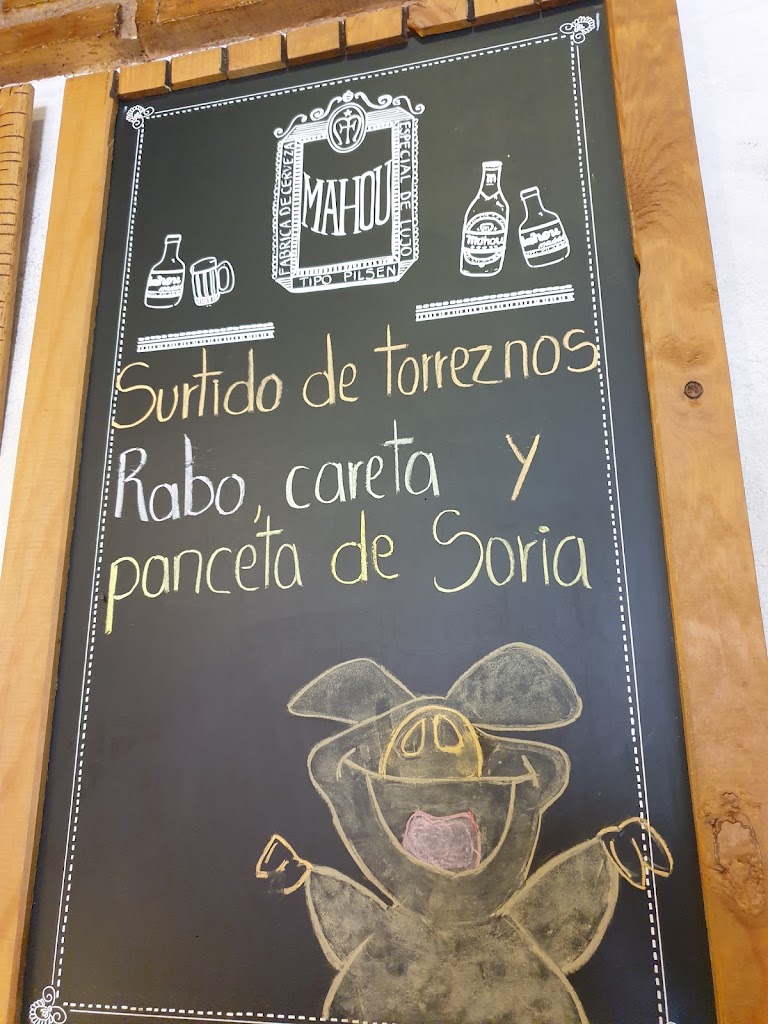 FABRICA DE CERVEZA
MAHOU
ESPECIAL DE LUJO
TIPO PILSEN
mahou
Surtido de torreznos
Rabo, careta y
panceta de Soria